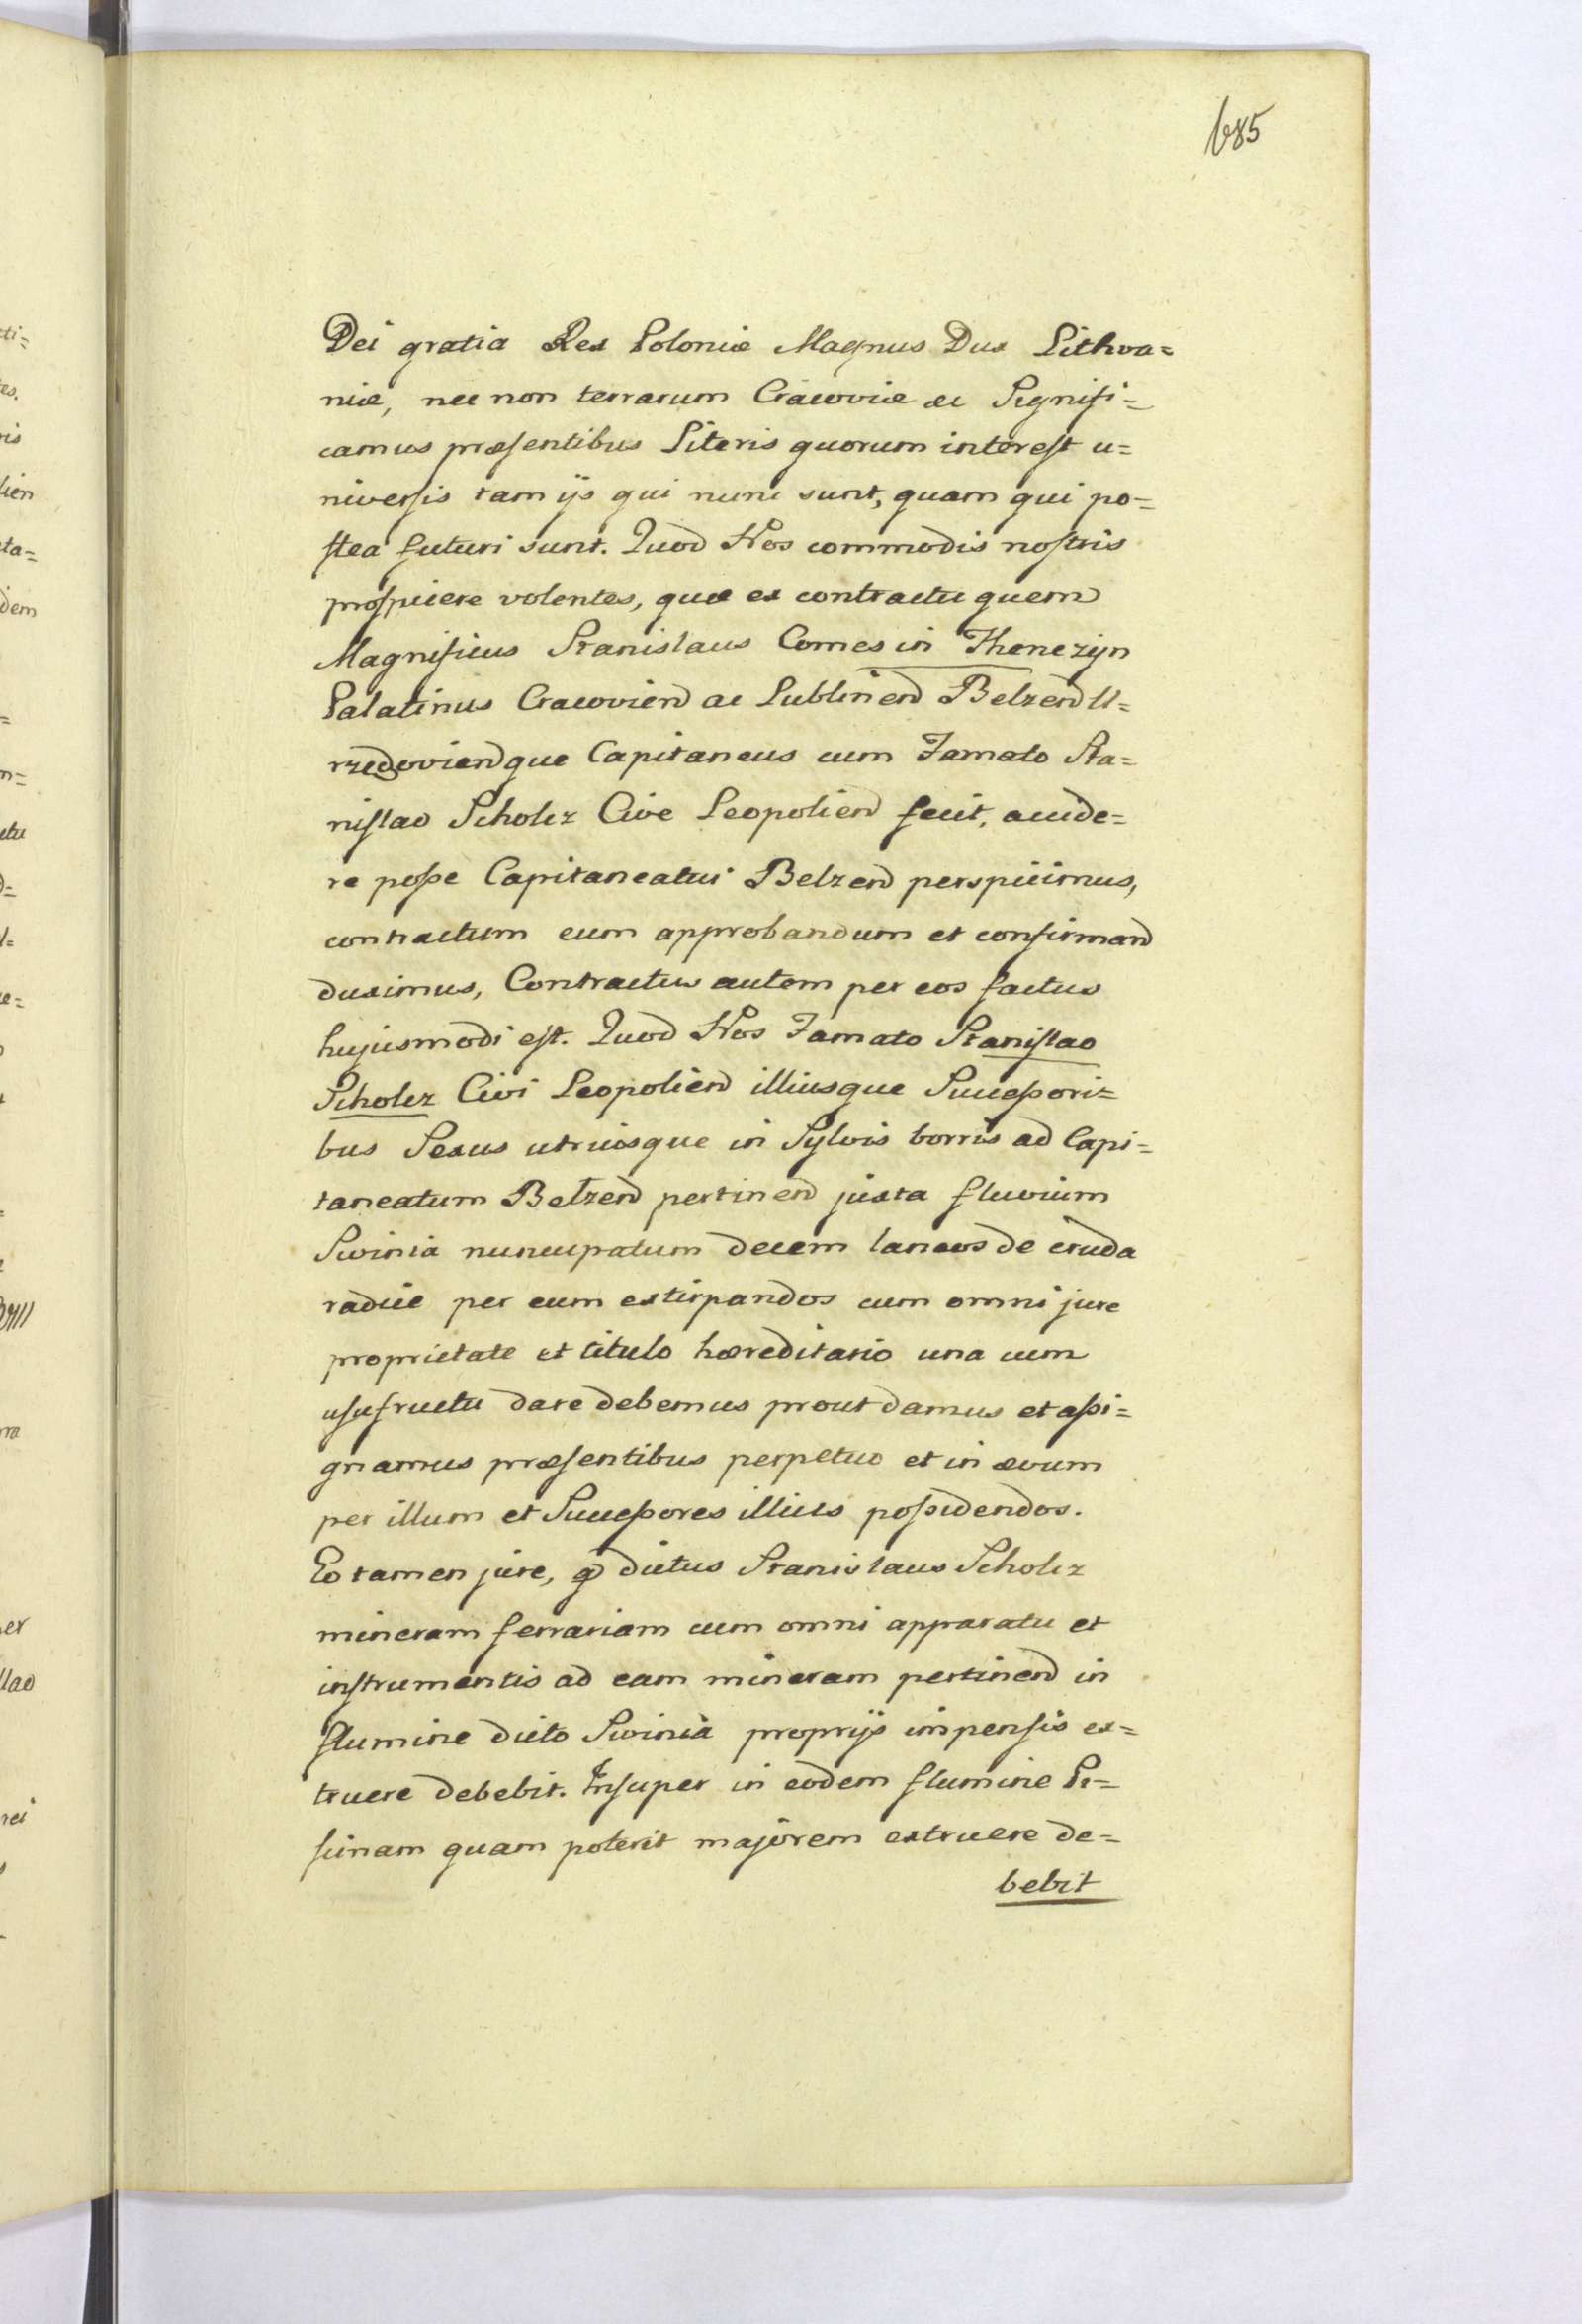 685
Dei gratia Rex Poloniæ Magnus Dux Lithva=
niæ, nec non terrarum Cracoviæ &c Signifi=
camus præsentibus Literis quorum interest u=
niversis tam ijs qui nunc sunt, quam qui po=
stea futuri sunt. Quod Nos commodis nostris
prospicere volentes, quæ ex contractu quem
Magnificus Stanislaus Comes in Thenczyn
Palatinus Cracovien ac Lublinen Belzen U=
rzedovienque Capitaneus cum Famato Sta=
nislao Scholcz Cive Leopolien fecit, accide=
re posse Capitaneatui Belzen perspicimus,
contractum eum approbandum et confirmand
duximus, Contractus autem per eos factus
hujusmodi est. Quod Nos Famato Stanislao
Scholcz Civi Leopolien illiusque Successori=
bus Sexus utriusque in Sylvis borris ad Capi=
taneatum Belzen pertinen juxta fluvium
Swinia nuncupatum decem laneos de cruda
radice per eum extirpandos cum omni jure
proprietate et titulo hæreditario una cum
usufructu dare debemus prout damus et assi=
gnamus præsentibus perpetuo et in ævum
per illum et Successores illius possidendos.
Eo tamen jure, q dictus Stanislaus Scholcz
mineram ferrariam cum omni apparatu et
instrumentis ad eam mineram pertinen in
flumine dicto Swinia proprijs impensis ex=
truere debebit. Insuper in eodem flumine Pi=
scinam quam poterit majorem extruere de=
bebit